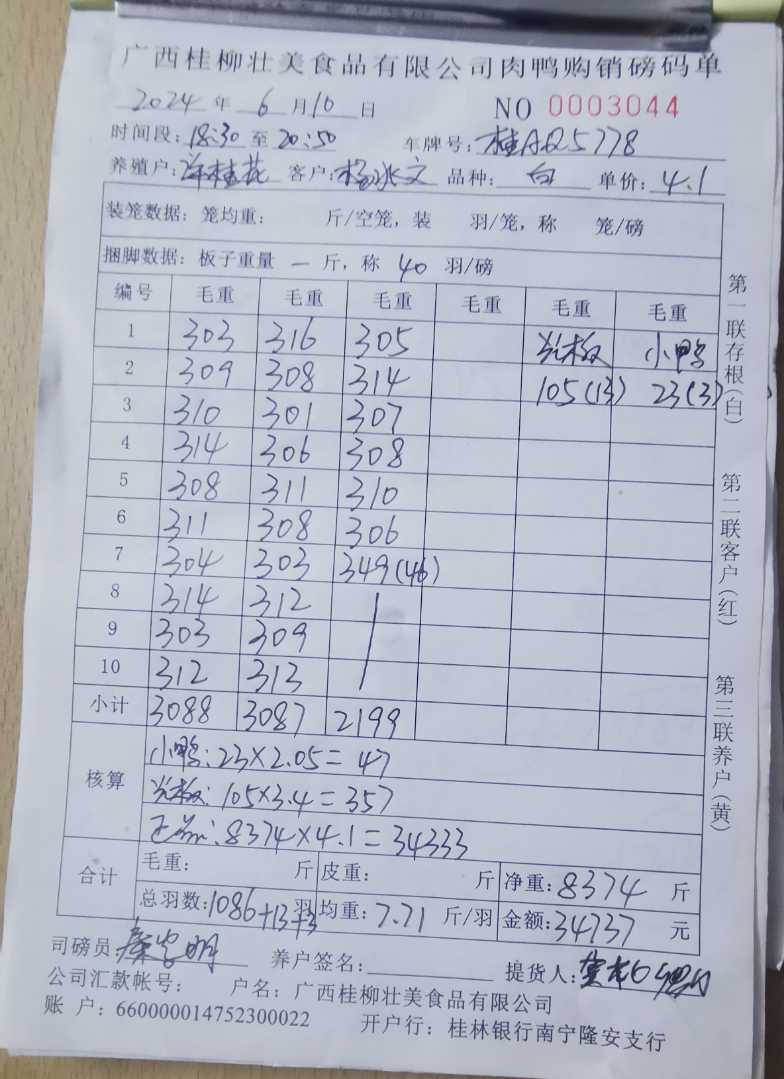 广西桂柳壮美食品有限公司肉鸭购销磅码单
2024 年 6 月 10 日 NO 0003044
时间段: 18:30 至 20:50 车牌号: 桂AQ5778
养殖户: 桂花 客户: 杨冰文 品种: 白 单价: 4.1
装笼数据: 笼均重: 斤/空笼, 装 羽/笼, 称 笼/磅
捆脚数据: 板子重量 一 斤, 称 40 羽/磅
编号 毛重 毛重 毛重 毛重 毛重 毛重
1 303 316 305 小鸭
2 309 308 314 105(13) 23(3)
3 310 301 307
4 314 306 308
5 308 311 310
6 311 308 306
7 304 303 349(46)
8 314 312
9 303 309
10 312 313
小计 3088 3087 2199
核算
小鸭: 23×2.05=47
105×3.4=357
8374×4.1=34333
合计
毛重: 斤 皮重: 斤 净重: 8374 斤
总羽数: 1086+13+3 羽 均重: 7.71 斤/羽 金额: 34737 元
司磅员 养户签名: 提货人:
公司汇款帐号: 户名: 广西桂柳壮美食品有限公司
账 户: 660000014752300022 开户行: 桂林银行南宁隆安支行
第一联存根(白)
第二联客户(红)
第三联养户(黄)